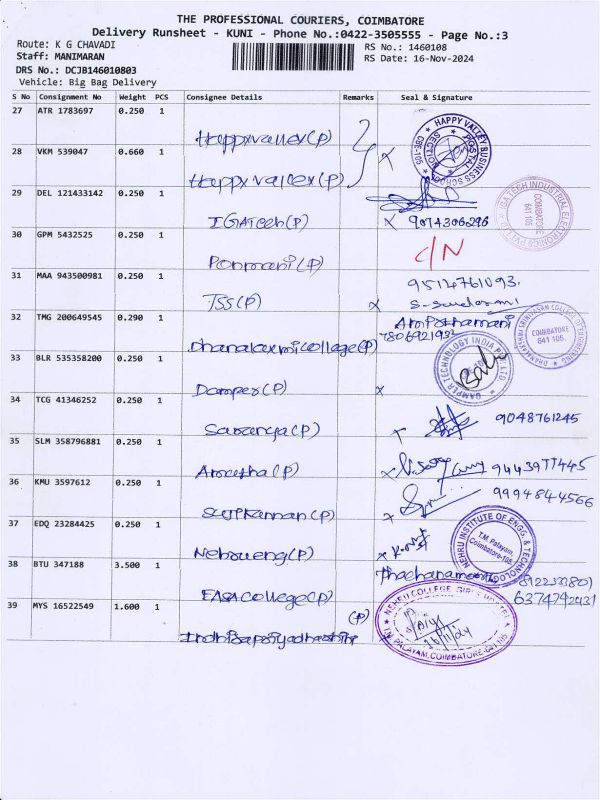 THE PROFESSIONAL COURIERS, COIMBATORE
Delivery Runsheet - KUNI - Phone No.:0422-3505555 - Page No.:3
Route: K G CHAVADI
RS No.: 1460108
Staff: MANIMARAN
RS Date: 16-Nov-2024
DRS No.: DCJB146010803
Vehicle: Big Bag Delivery
S No Consignment No Weight PCS Consignee Details Remarks Seal & Signature
27 ATR 1783697 0.250 1
Happyvalley(P)
HAPPY VALLEY BUSINESS SCHOOL
CBE-105
28 VKM 539047 0.660 1
Happy valley(P)
29 DEL 121433142 0.250 1
IGATech(P)
9074306296
IGATECH INDUSTRIAL ELECTRONICS PVT LTD
COIMBATORE
641 105
30 GPM 5432525 0.250 1
Ponmani(P)
C/N
31 MAA 943500981 0.250 1
TSS(P)
9514761093.
32 TMG 200649545 0.290 1
Dhanalaxmicollege(P)
DHANALAKSHMI SRINIVASAN COLLEGE OF ENGINEERING
COIMBATORE
641 105.
33 BLR 535358200 0.250 1
Damper(P)
DAMPER TECHNOLOGY INDIA PVT LTD
34 TCG 41346252 0.250 1
Saranya(P)
9048761245
35 SLM 358796881 0.250 1
9443977445
36 KMU 3597612 0.250 1
9994844566
37 EDQ 23284425 0.250 1
Nehrueng(P)
NEHRU INSTITUTE OF ENGG. & TECHNOLOGY
T.M. Palayam,
Coimbatore-105.
38 BTU 347188 3.500 1
EASA College(P)
6374792431
39 MYS 16522549 1.600 1
(P)
NEHRU COLLEGE GIRLS
PALAYAM, COIMBATORE-641 105
16/11/24